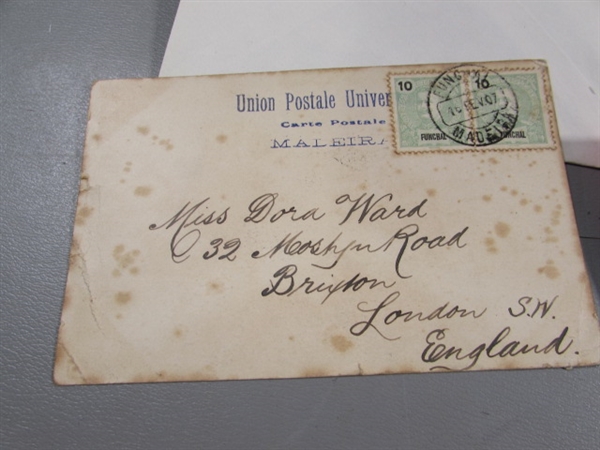 Union Postale Univer
Carte Postale
MADEIRA
10
10
FUNCHAL
FUNCHAL
MADEIRA
Miss Dora Ward
32 Road
Brixton
London S.W.
England.